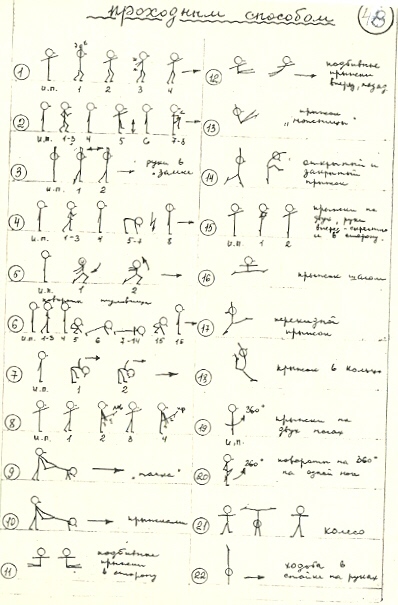 проходным способом
48
1
и.п. 1 2 3 4
2
и.п. 1-3 4 5 6 7-8
3
и.п. 1 2
руки в
"замке"
4
и.п. 1-3 4 5-7 8
5
и.п. 1 2
повороты туловища
6
и.п. 1-3 4 5 6 7-14 15 16
7
и.п. 1 2
8
и.п. 1 2 3 4
9
"тачка"
10
прыжками
11
подбивные
прыжки
в сторону
12
подбивные
прыжки
вперед, назад
13
прыжок
"ножницы"
14
открытый и
закрытый
прыжок
15
и.п. 1 2
прыжки на
двух, руки
вперед-скрестно
и в сторону.
16
прыжок шагом
17
перекидной
прыжок
18
прыжок в кольцо
19
360°
и.п.
прыжки на
двух ногах
20
360°
повороты на 360°
на одной ноге
21
колесо
22
ходьба в
стойке на руках